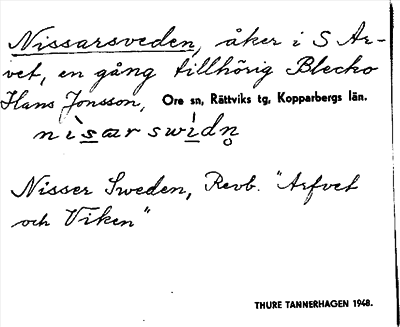 Nissarsveden, åker i S Ar-
vet, en gång tillhörig Blecko
Hans Jonsson, Ore sn, Rättviks tg, Kopparbergs län.
nìsar swídn̥
Nisser Sweden, Revb. "Arfvet
och Viken"
THURE TANNERHAGEN 1948.